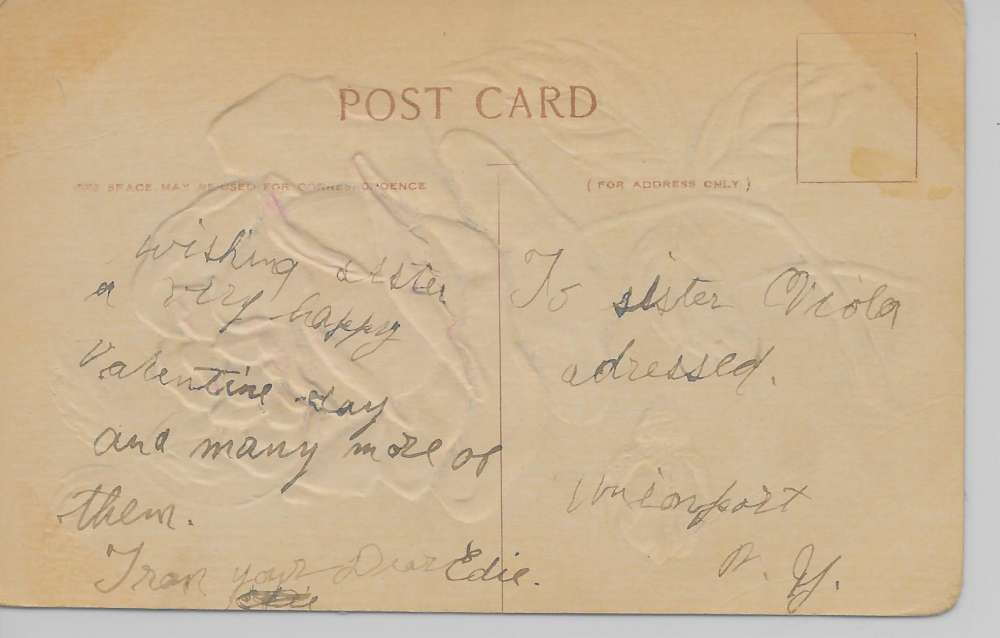 POST CARD
THIS SPACE MAY BE USED FOR CORRESPONDENCE
( FOR ADDRESS ONLY )
wishing sister
a very happy
Valentine day
and many more of
them.
From your Dear Edie.
To sister Viola
adressed.
Unionport
N. Y.